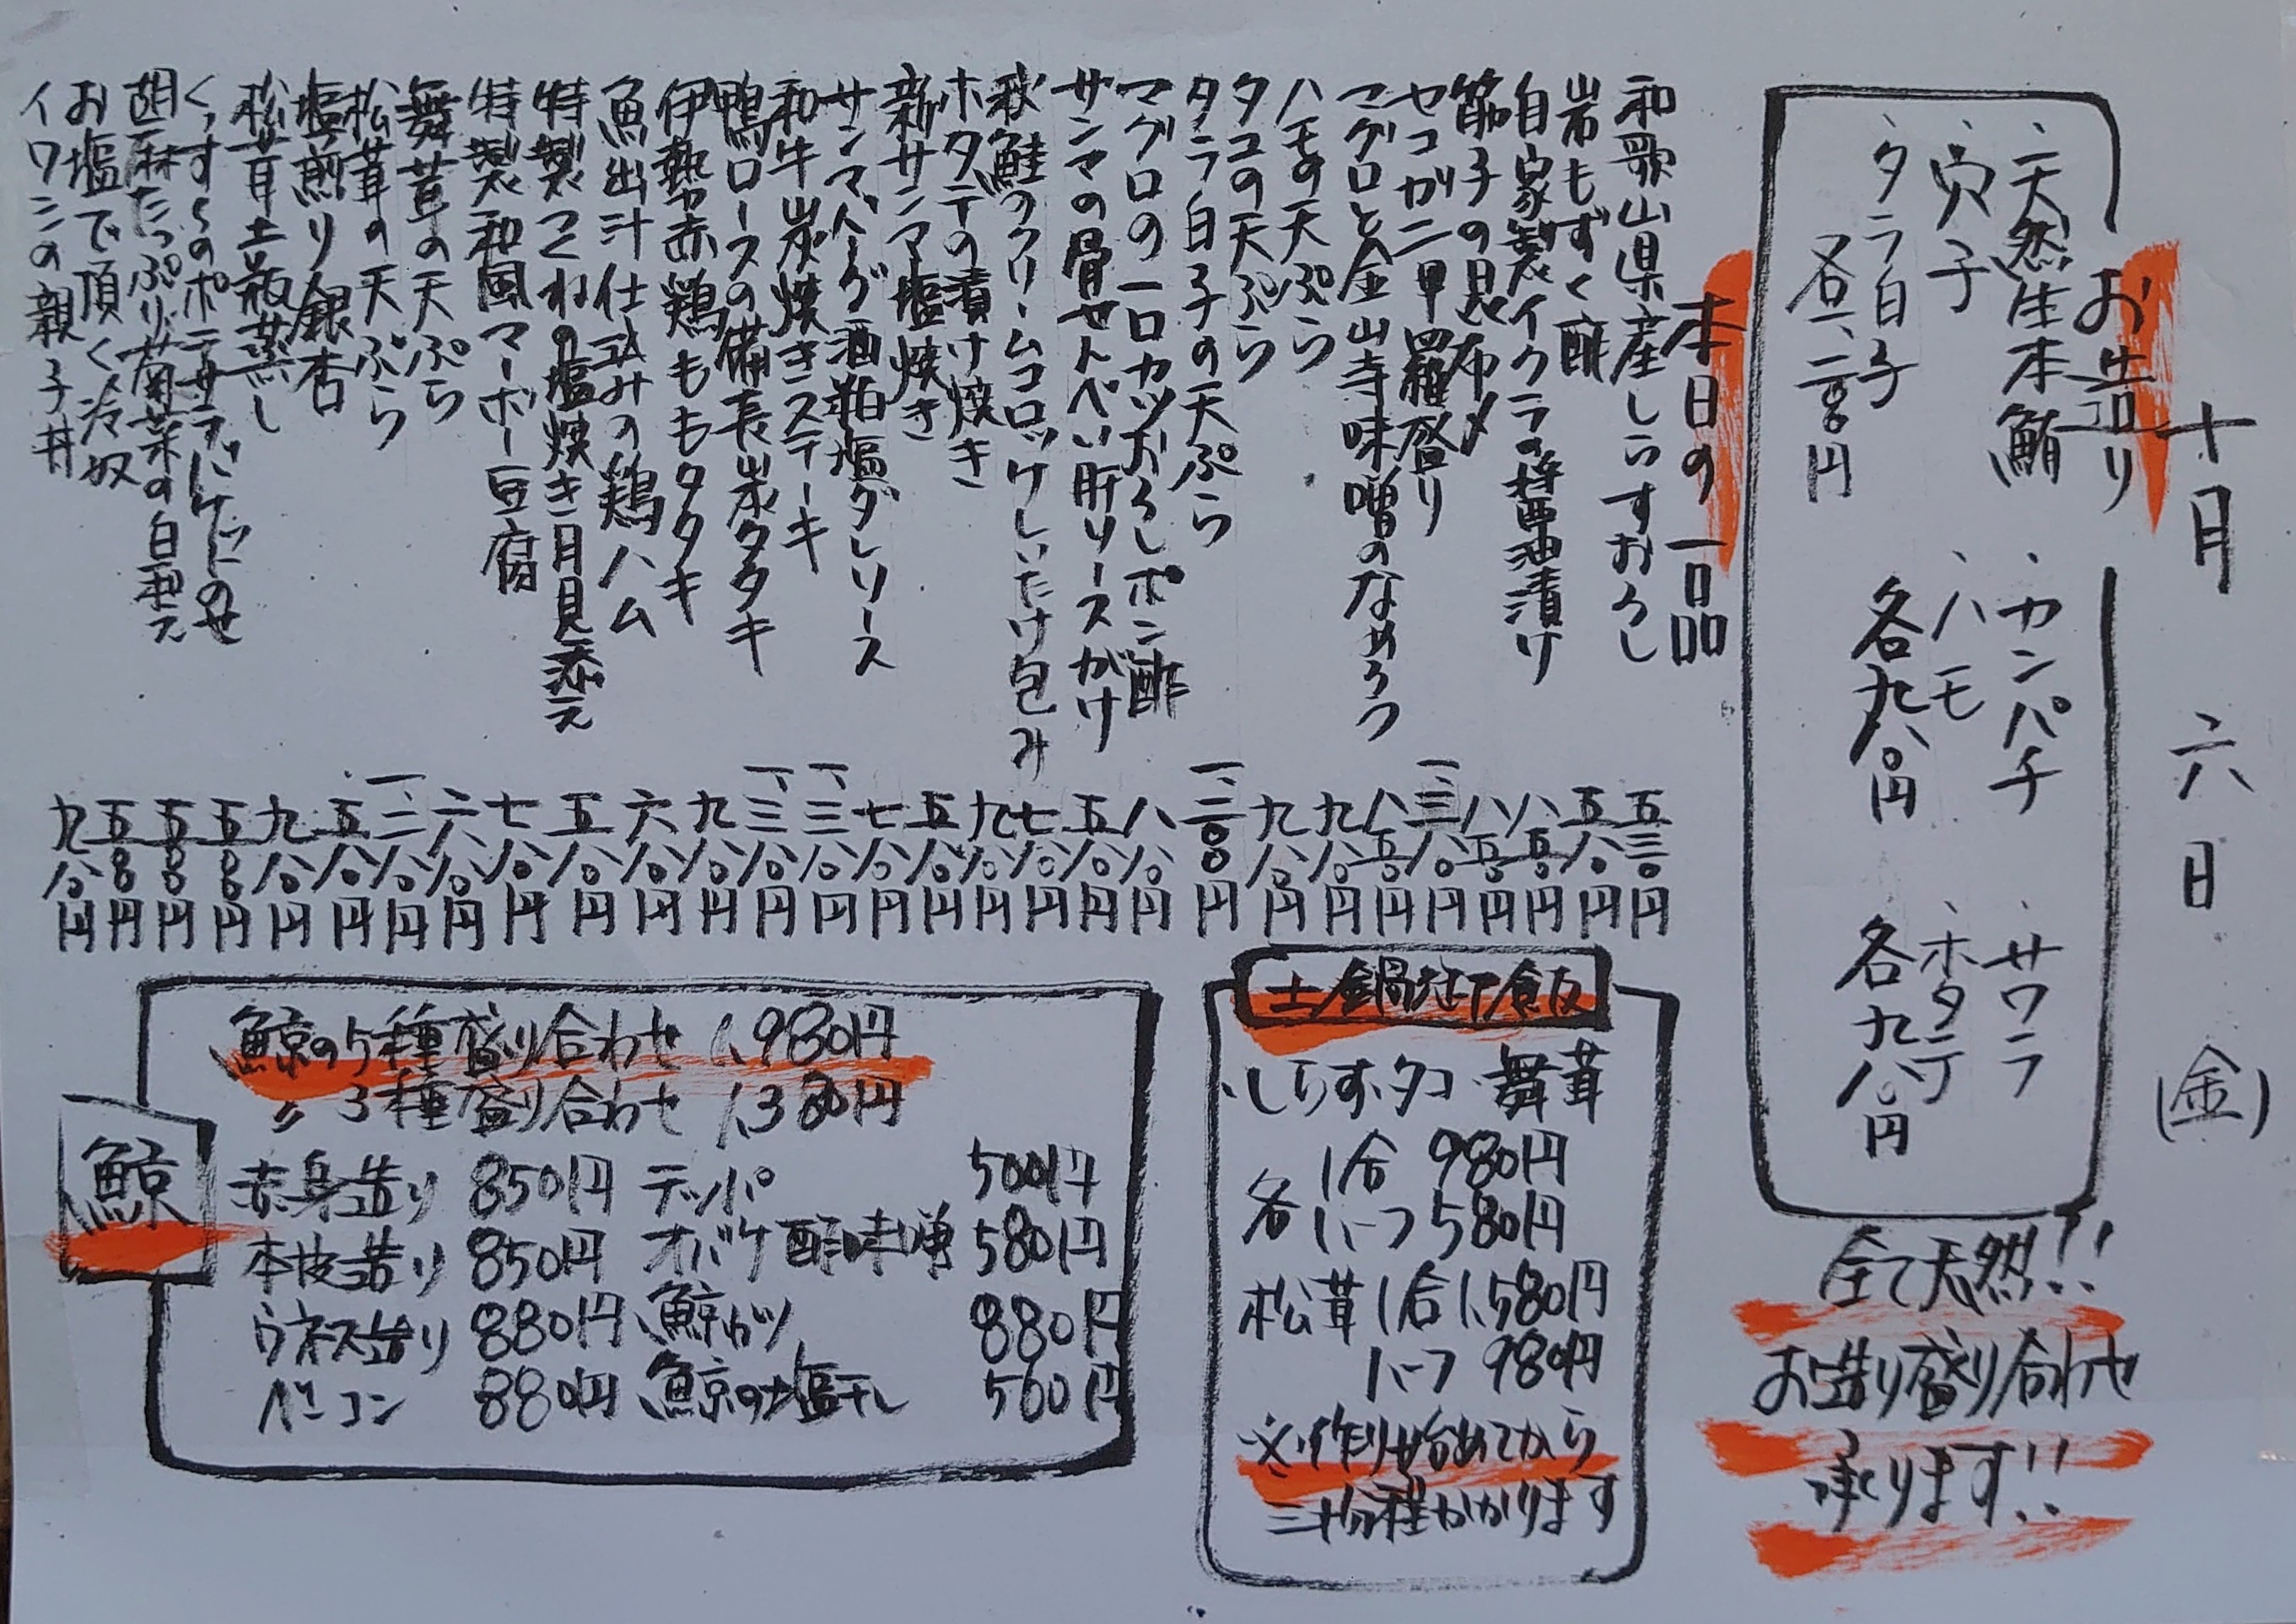 十月 六日 (金)
お造り
・天然生本鮪
・穴子
・タラ白子
各一、二〇〇円
・カンパチ
・ハモ
各九八〇円
・サワラ
・ホタテ
各九八〇円
全て天然!!
お造り盛り合わせ
承ります!!
本日の一品
和歌山県産しらすおろし 五三〇円
岩もずく酢 五八〇円
自家製イクラの醤油漬け 八五〇円
筋子の昆布〆 八五〇円
セコガニ甲羅盛り 一、三八〇円
マグロと金山寺味噌のなめろう 八五〇円
ハモの天ぷら 九八〇円
タコの天ぷら 九八〇円
タラ白子の天ぷら 一、二〇〇円
マグロの一口カツおろしポン酢 八八〇円
サンマの骨せんべい肝ソースがけ 五八〇円
秋鮭のクリームコロッケしいたけ包み 七八〇円
ホタテの漬け焼き 九八〇円
新サンマ塩焼き 五八〇円
サンマハンバーグ酒粕塩ダレソース 七八〇円
和牛炭焼きステーキ 一、三八〇円
鴨ロースの備長炭タタキ 一、三八〇円
伊勢赤鶏ももタタキ 九八〇円
魚出汁仕込みの鶏ハム 六八〇円
特製つくねの塩焼き月見添え 五八〇円
特製和風マーボー豆腐 七八〇円
舞茸の天ぷら 六八〇円
松茸の天ぷら 一、二八〇円
塩煎り銀杏 五八〇円
松茸土瓶蒸し 九八〇円
くんすものポテサラバケットのせ 五〇〇円
胡麻たっぷり菊菜の白和え 五〇〇円
お塩で頂く冷奴 五〇〇円
イワシの親子丼 九八〇円
土鍋御飯
・しらす・タコ・舞茸
各 1合 980円
ハーフ 580円
松茸 1合 1,580円
ハーフ 980円
※作り始めてから
三十分程かかります
鯨
鯨の5種盛り合わせ 1,980円
〃 3種盛り合わせ 1,380円
赤身造り 850円 テッパ 500円
本皮造り 850円 オバケ酢味噌 580円
ウネス造り 880円 鯨カツ 880円
ベーコン 880円 鯨の塩干し 500円